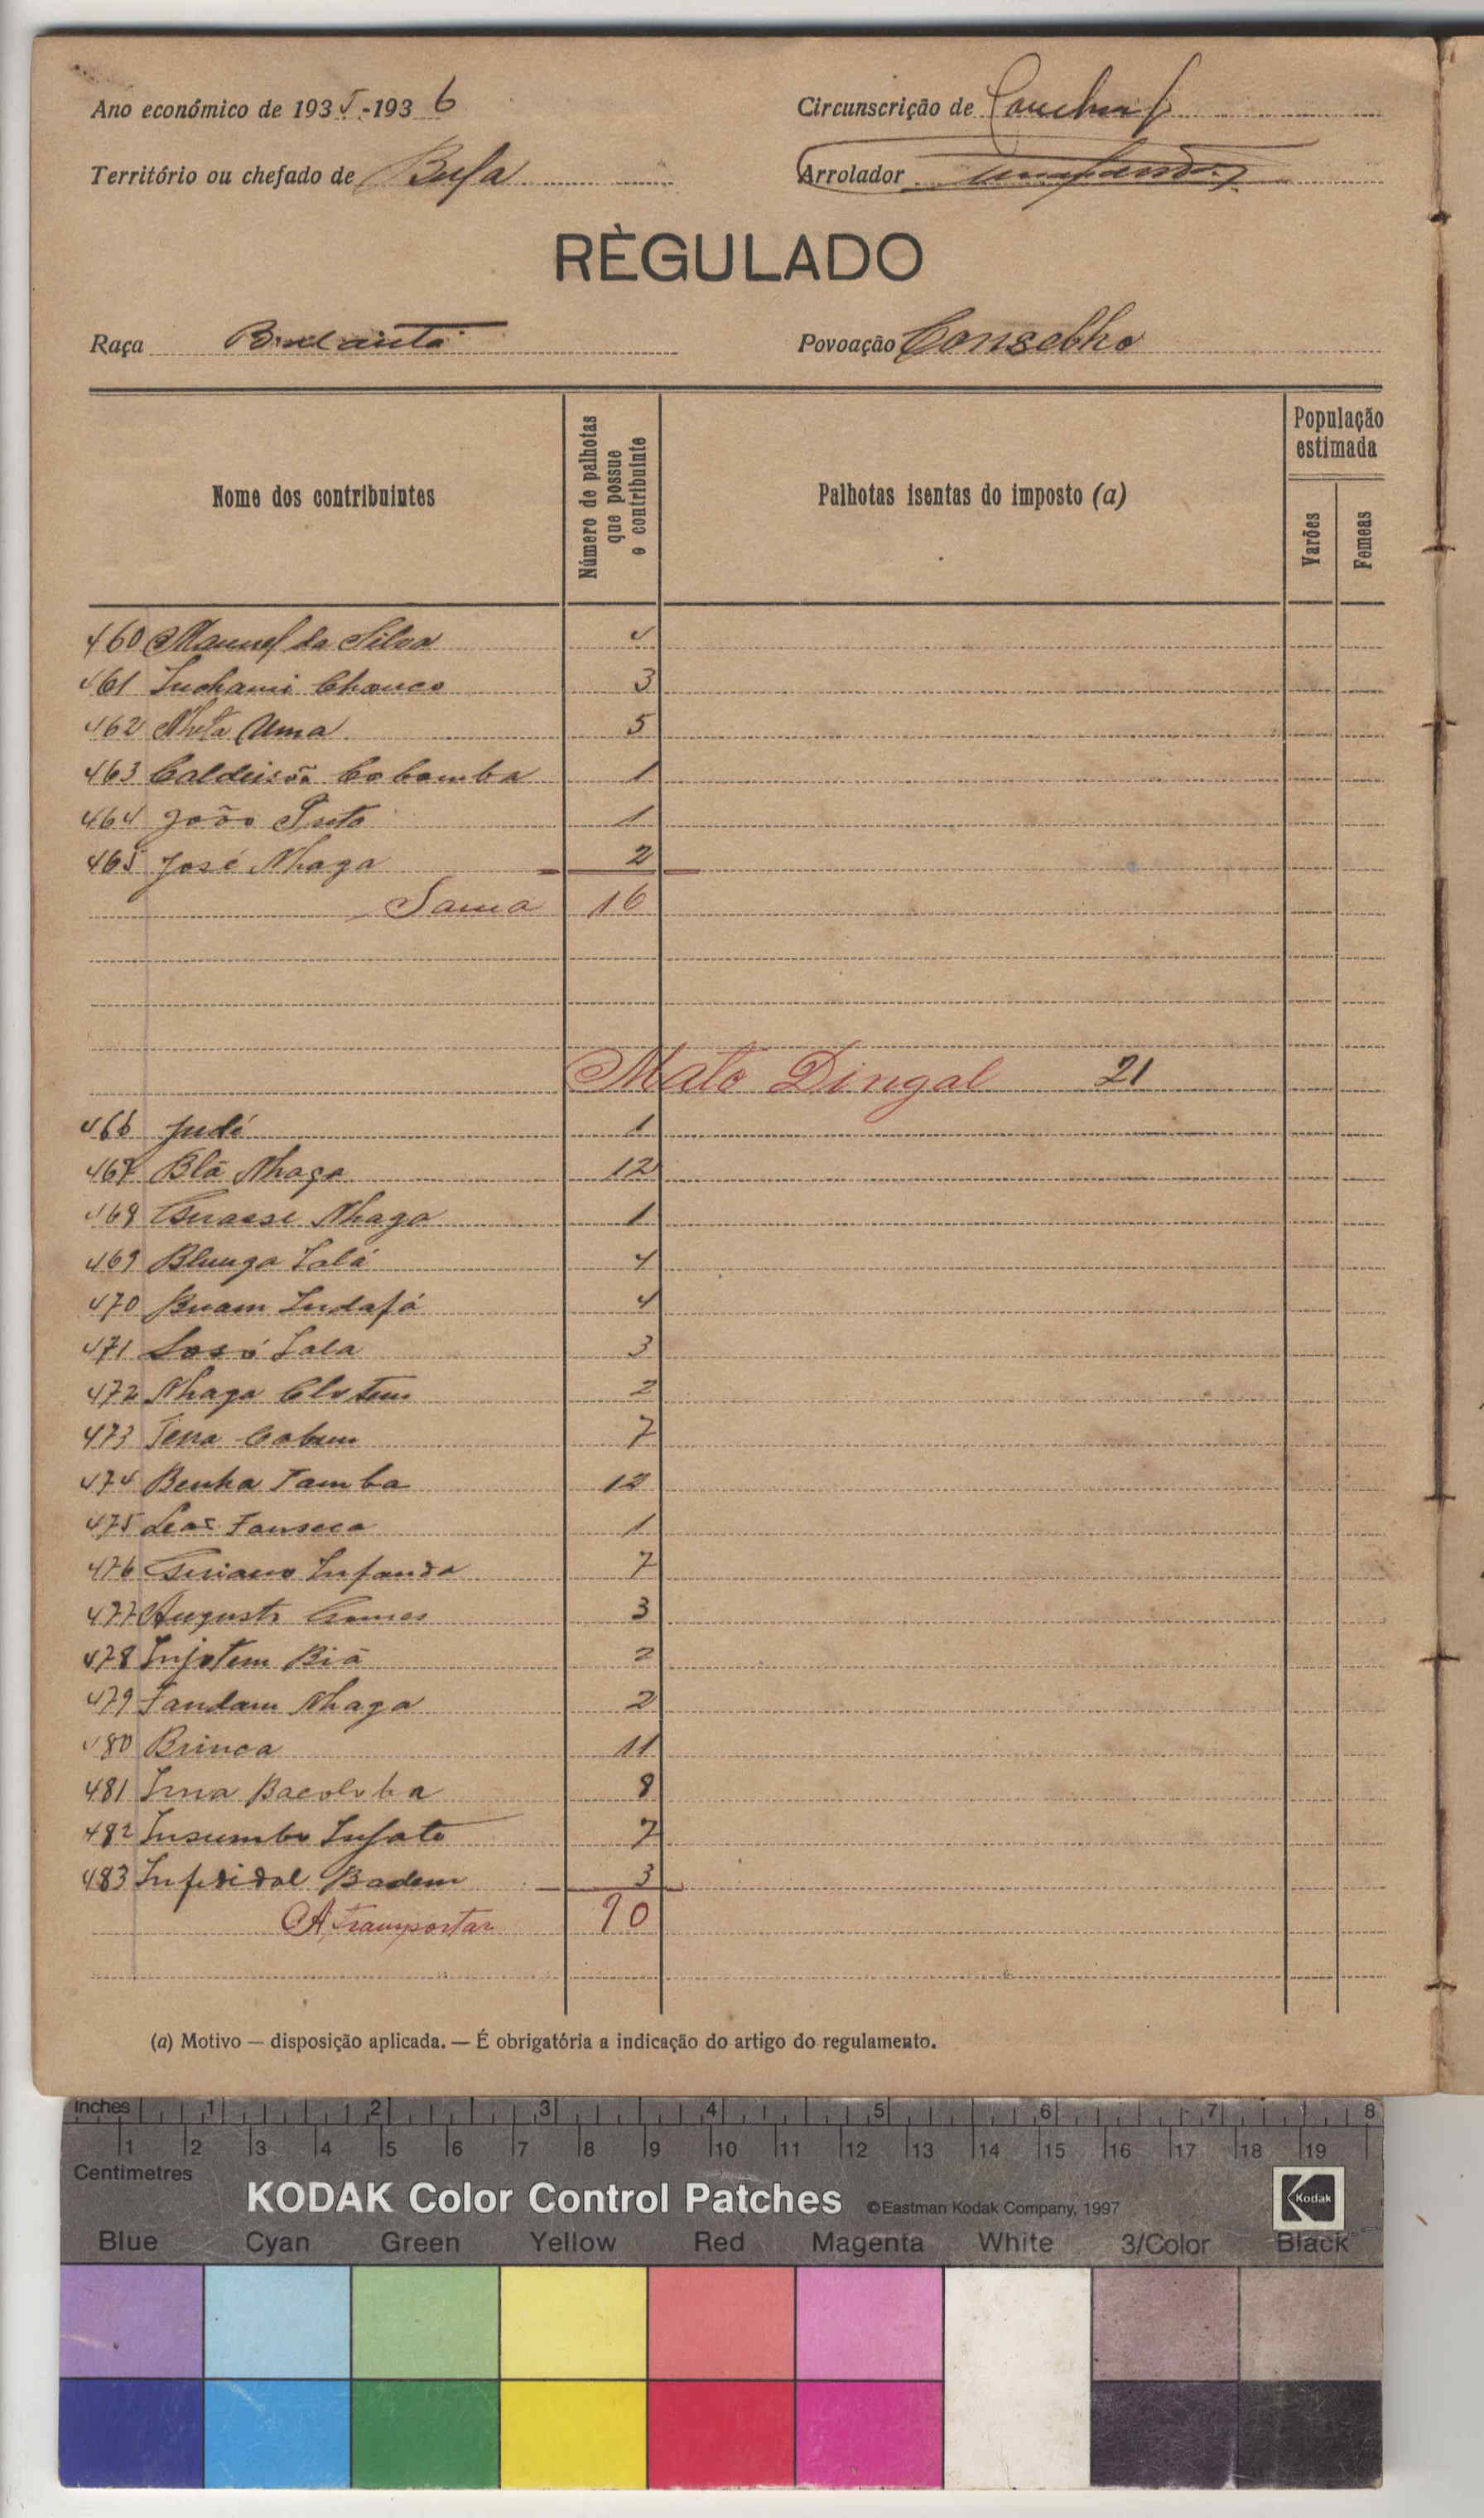 Ano económico de 1935-1936
Circunscrição de
Território ou chefado de Bula
Arrolador
RÈGULADO
Raça Balanta
Povoação Conselho
Nome dos contribuintes
Número de palhotas que possue o contribuinte
Palhotas isentas do imposto (a)
População estimada
Varões
Femeas
460 Manuel da Silva 4
461 3
462 Uma 5
463 1
464 João Preto 1
465 José Nhaga 2
Soma 16
Mato Dingal 21
466 Judé 1
467 Blã Nhaga 12
468 Nhaga 1
469 Blunga Lalá 4
470 Buam Indafá 4
471 3
472 Nhaga 2
473 7
474 Benha Tamba 12
475 Fonseca 1
476 Infanda 7
477 Augusto Gomes 3
478 Injotem Biã 2
479 Nhaga 2
480 Brinca 11
481 8
482 Insumbo 7
483 Badem 3
A transportar 90
(a) Motivo — disposição aplicada. — É obrigatória a indicação do artigo do regulamento.
Inches 1 2 3 4 5 6 7 8
1 2 3 4 5 6 7 8 9 10 11 12 13 14 15 16 17 18 19
Centimetres
KODAK Color Control Patches ©Eastman Kodak Company, 1997 Kodak
Blue Cyan Green Yellow Red Magenta White 3/Color Black